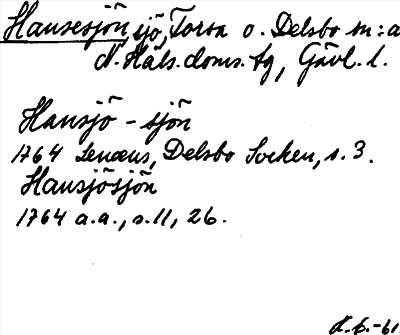 Hansesjön sjö, Torsa o. Delsbo sn:a
N. Häls. doms. tg, Gävl. l.
Hansjö - sjön
1764 Lenæus, Delsbo Socken, s. 3.
Hansjösjön
1764 a.a., s. 11, 26.